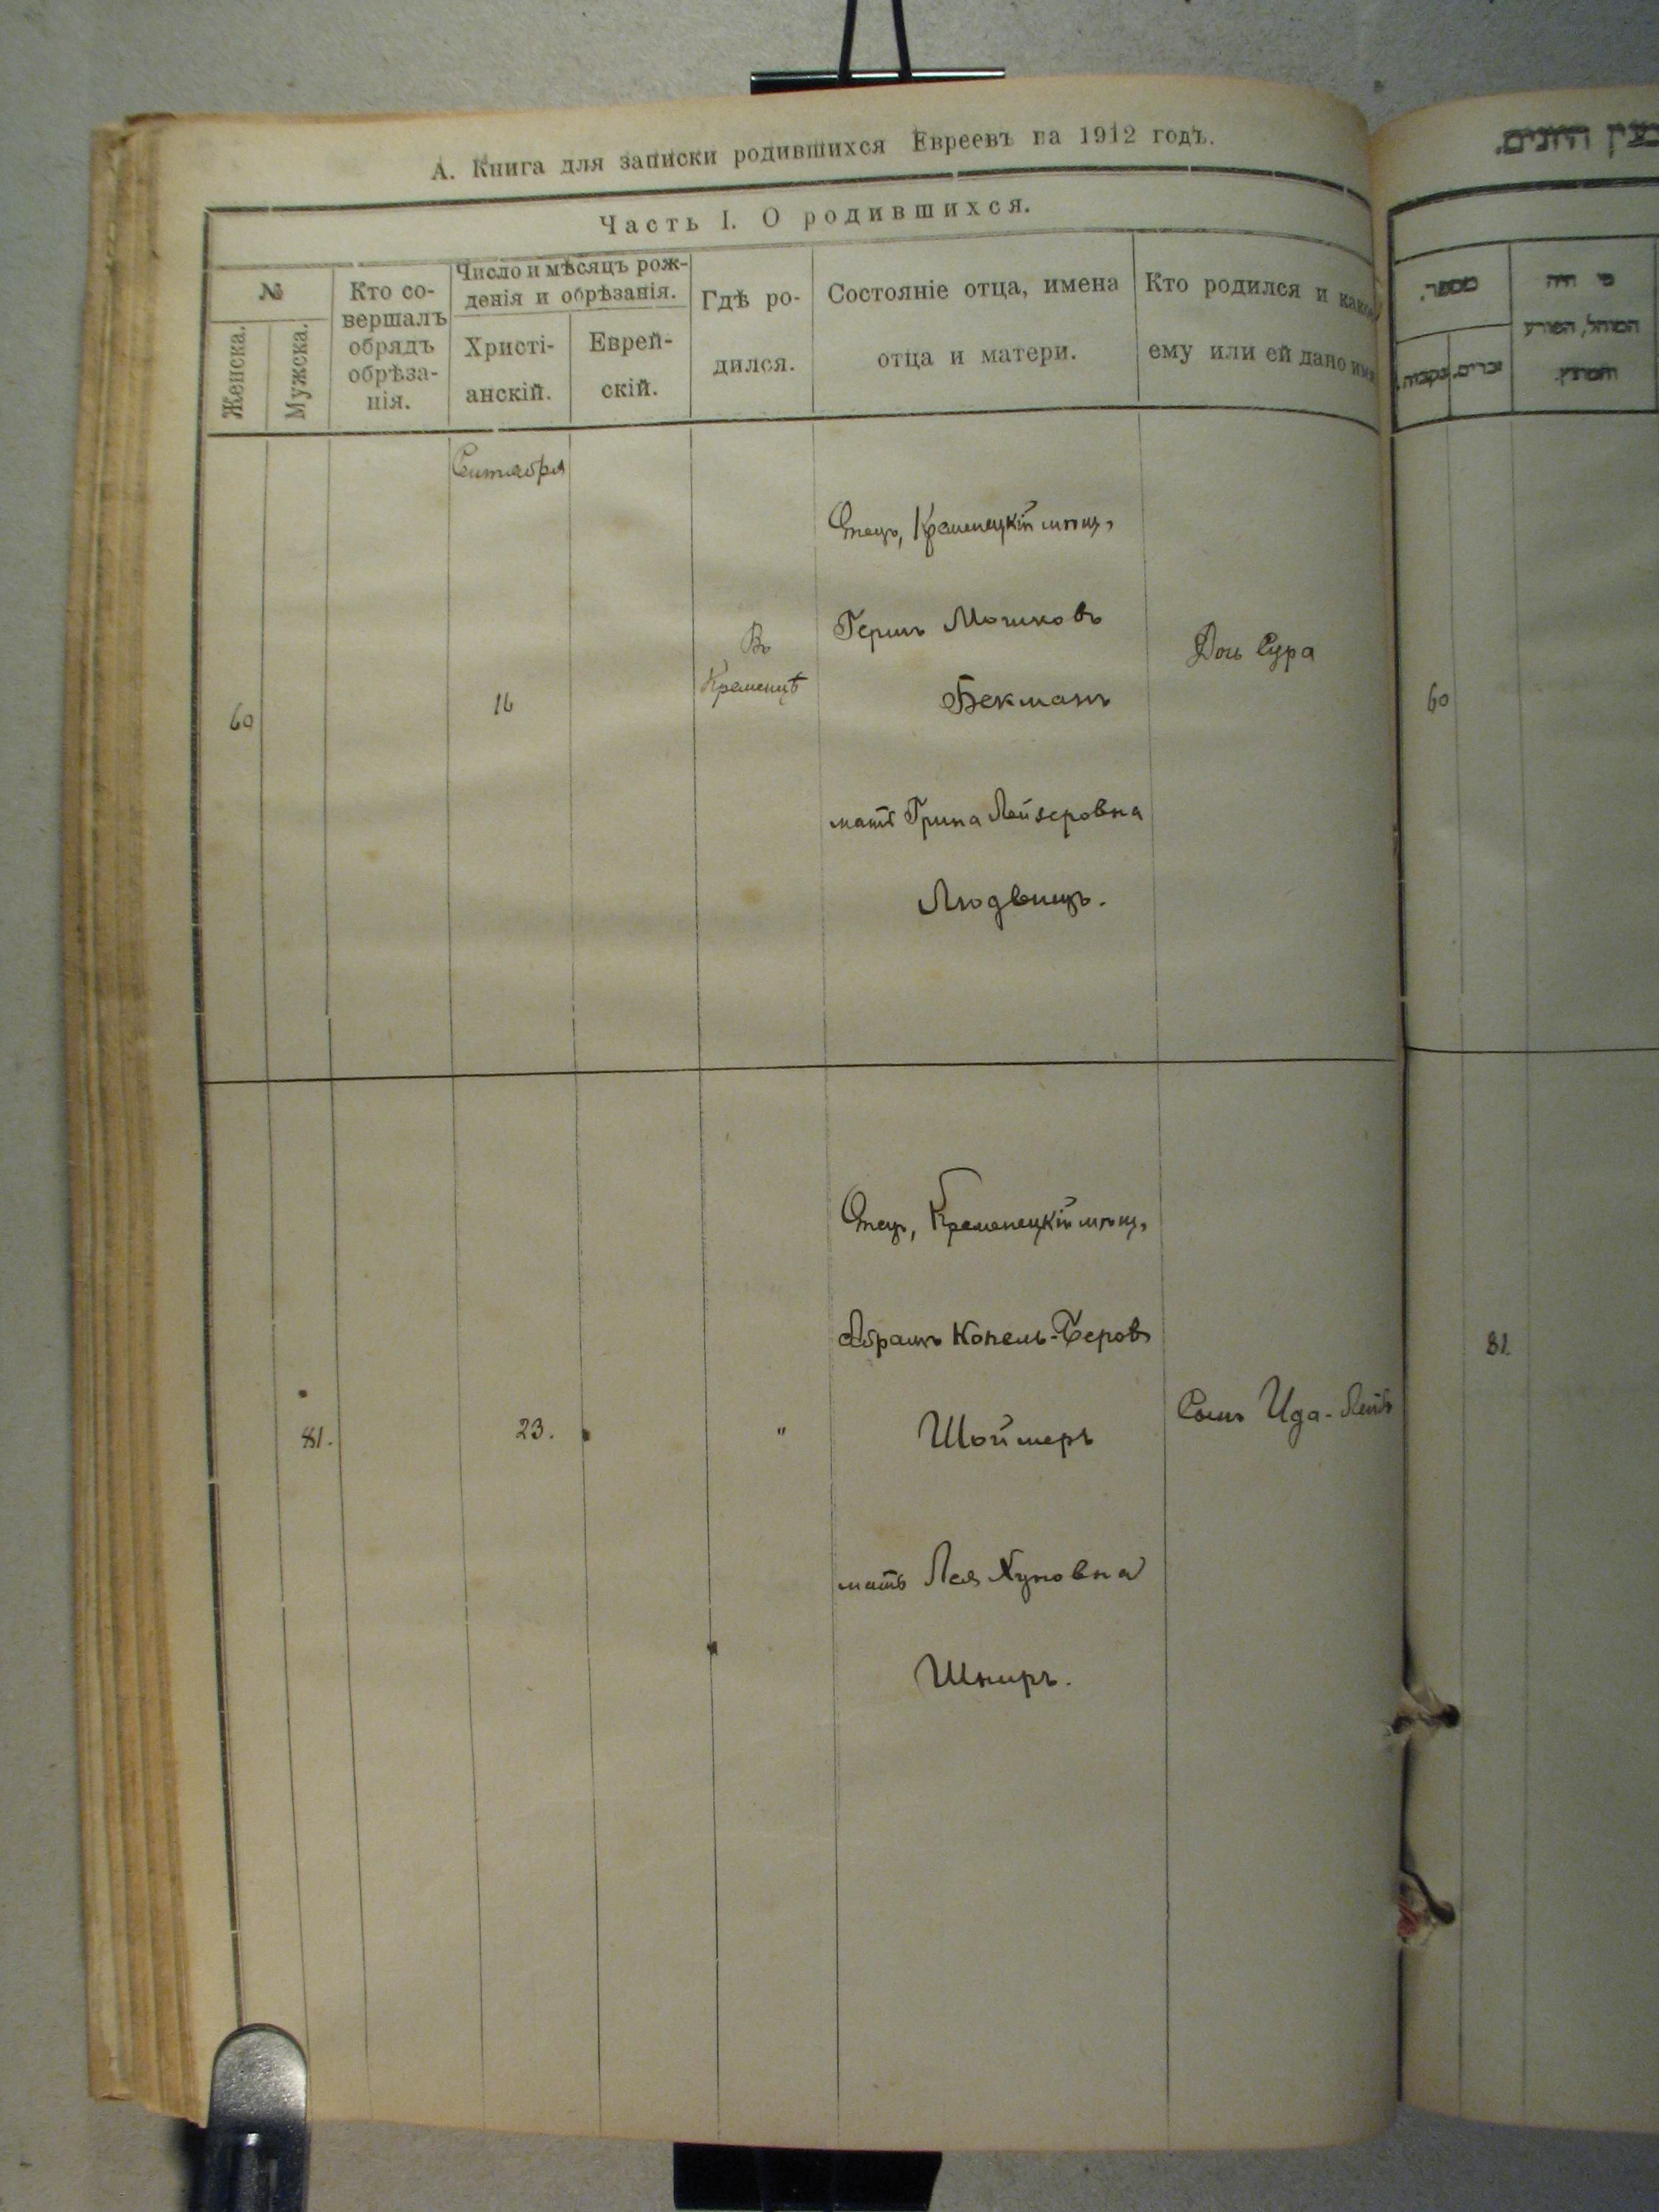 А. Книга для записки родившихся Евреевъ на 1912 годъ.
Часть I. О родившихся.
№
Женска.
Мужска.
Кто со-
вершалъ
обрядъ
обрѣза-
нія.
Число и мѣсяцъ рож-
денія и обрѣзанія.
Христі-
анскій.
Еврей-
скій.
Гдѣ ро-
дился.
Состояніе отца, имена
отца и матери.
Кто родился и какое
ему или ей дано имя
Сентября
60
16
Въ
Кременцѣ
Отецъ, Кременецкій мѣщ,
Гершъ Мошковъ
Бекманъ
мать Грина Лейзеровна
Людвищъ.
Дочь Сура
81.
23.
"
Отецъ, Кременецкій мѣщ,
Абрамъ Копель-Беровъ
Шоймеръ
мать Лея Хуновна
Шниръ.
Сынъ Ида-Лейбъ
מספר.
זכרים.
נקבות.
מי היה
המוהל, הפורע
והמוצץ.
60
81.